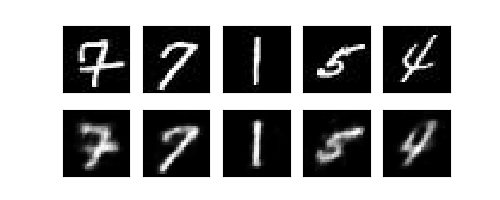 7 7 1 5 4
7 7 1 5 4